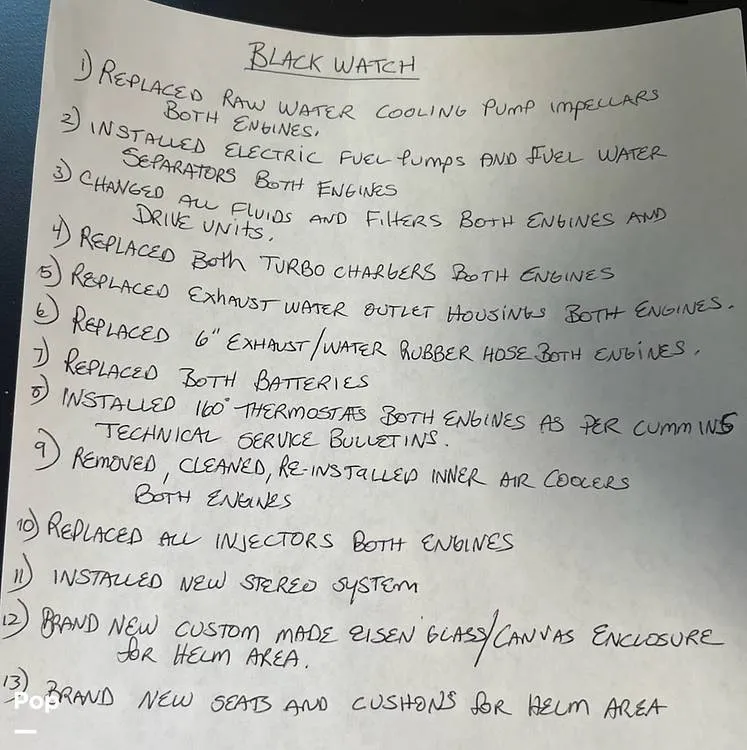 BLACK WATCH
1) REPLACED RAW WATER COOLING PUMP IMPELLARS
BOTH ENGINES.
2) INSTALLED ELECTRIC FUEL PUMPS AND FUEL WATER
SEPARATORS BOTH ENGINES
3) CHANGED ALL FLUIDS AND FILTERS BOTH ENGINES AND
DRIVE UNITS.
4) REPLACED BOTH TURBO CHARGERS BOTH ENGINES
5) REPLACED EXHAUST WATER OUTLET HOUSINGS BOTH ENGINES.
6) REPLACED 6" EXHAUST/WATER RUBBER HOSE BOTH ENGINES.
7) REPLACED BOTH BATTERIES
8) INSTALLED 160° THERMOSTATS BOTH ENGINES AS PER CUMMINS
TECHNICAL SERVICE BULLETINS.
9) REMOVED, CLEANED, RE-INSTALLED INNER AIR COOLERS
BOTH ENGINES
10) REPLACED ALL INJECTORS BOTH ENGINES
11) INSTALLED NEW STEREO SYSTEM
12) BRAND NEW CUSTOM MADE EISEN GLASS/CANVAS ENCLOSURE
for HELM AREA.
13) BRAND NEW SEATS AND CUSHONS for HELM AREA
Pop